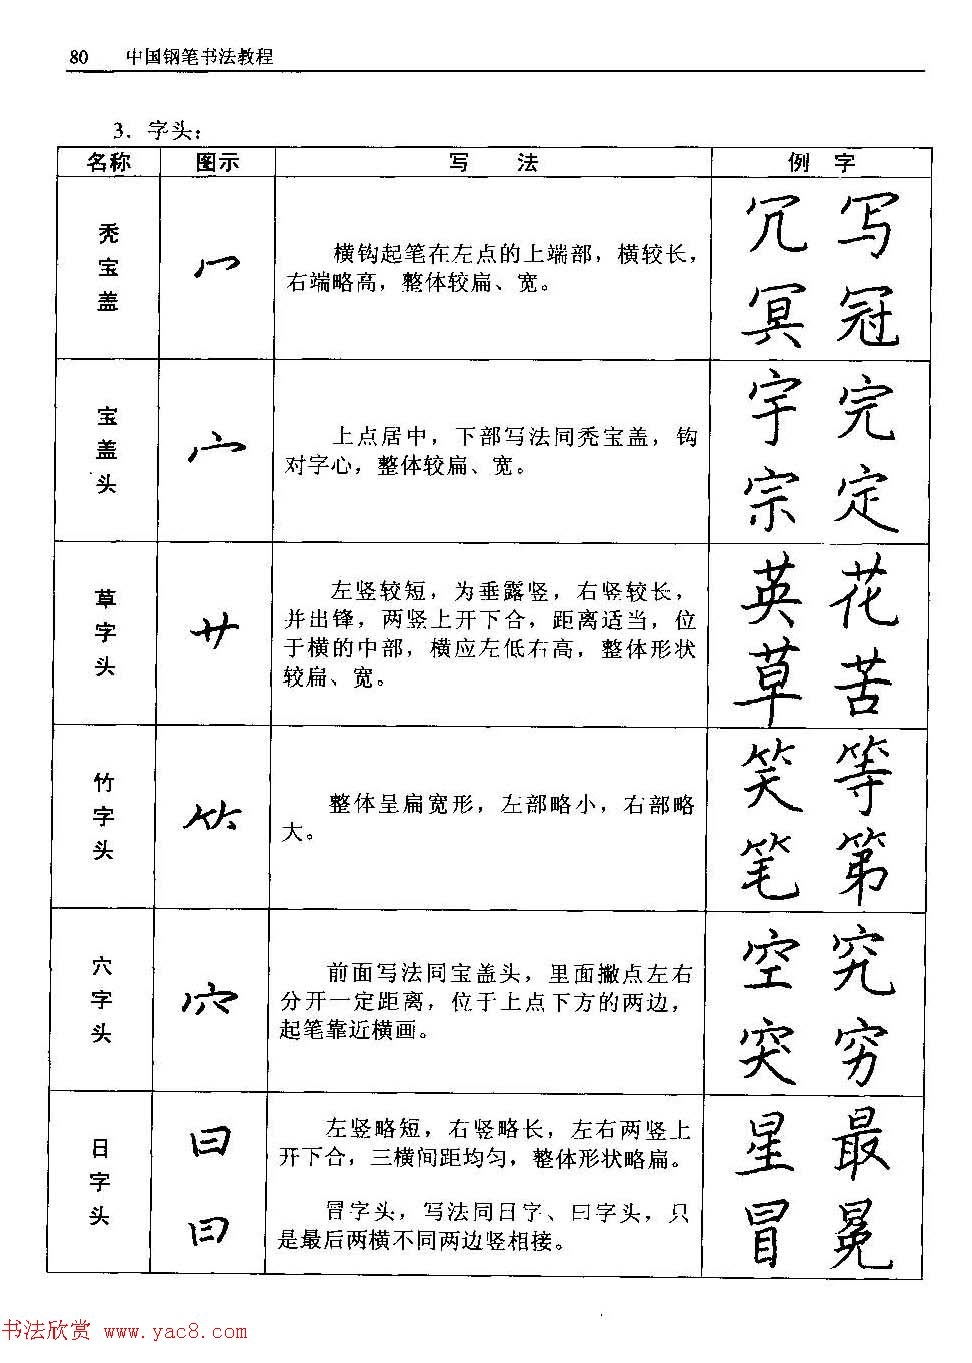 80 中国钢笔书法教程
3. 字头：
名称 图示 写 法 例 字
秃宝盖 冖 横钩起笔在左点的上端部，横较长，
右端略高，整体较扁、宽。
冗 写
冥 冠
宝盖头 宀 上点居中，下部写法同秃宝盖，钩
对字心，整体较扁、宽。
宇 完
宗 定
草字头 艹 左竖较短，为垂露竖，右竖较长，
并出锋，两竖上开下合，距离适当，位
于横的中部，横应左低右高，整体形状
较扁、宽。
英 花
草 苦
竹字头 ⺮ 整体呈扁宽形，左部略小，右部略
大。
笑 等
笔 第
穴字头 穴 前面写法同宝盖头，里面撇点左右
分开一定距离，位于上点下方的两边，
起笔靠近横画。
空 究
突 穷
日字头 日 左竖略短，右竖略长，左右两竖上
开下合，三横间距均匀，整体形状略扁。
曰 冒字头，写法同日字、曰字头，只
是最后两横不同两边竖相接。
星 最
冒 冕
书法欣赏 www.yac8.com